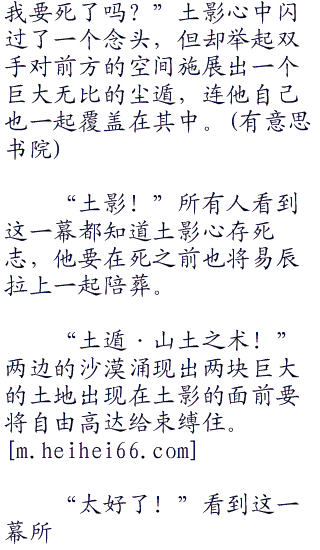 我要死了吗？”土影心中闪
过了一个念头，但却举起双
手对前方的空间施展出一个
巨大无比的尘遁，连他自己
也一起覆盖在其中。(有意思
书院)
“土影！”所有人看到
这一幕都知道土影心存死
志，他要在死之前也将易辰
拉上一起陪葬。
“土遁·山土之术！”
两边的沙漠涌现出两块巨大
的土地出现在土影的面前要
将自由高达给束缚住。
[m.heihei66.com]
“太好了！”看到这一
幕所